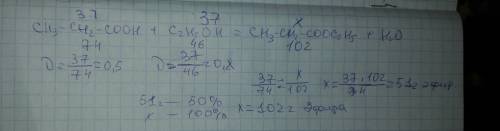 37 37 x
CH₃-CH₂-COOH + C₂H₅OH = CH₃CH₂COOC₂H₅ + H₂O
74 46 102
D=37/74=0,5 D=37/46=0,8
37/74=x/102 x=37·102/74=51г эфира
51г — 50%
x — 100% x=102г эфира